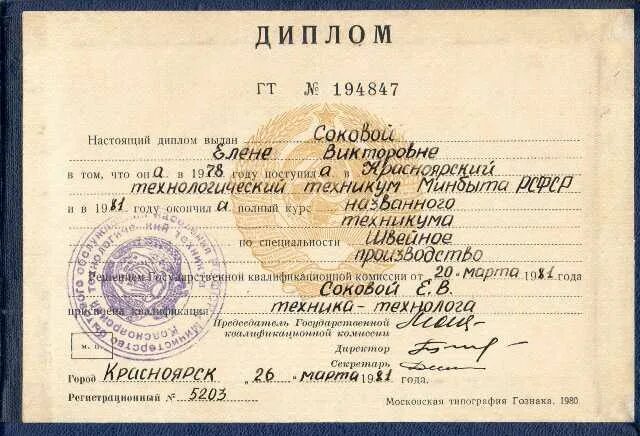 ДИПЛОМ
ГТ № 194847
Настоящий диплом выдан Соковой
Елене Викторовне
в том, что она в 1978 году поступила в Красноярский
технологический техникум Минбыта РСФСР
и в 1981 году окончила полный курс названного
техникума
по специальности Швейное
производство
Решением Государственной квалификационной комиссии от 20 марта 1981 года
Соковой Е.В.
присвоена квалификация техника-технолога
Председатель Государственной
квалификационной комиссии
Директор
Секретарь
М. П.
Город Красноярск 26 марта 1981 года.
Регистрационный № 5203
Московская типография Гознака. 1980